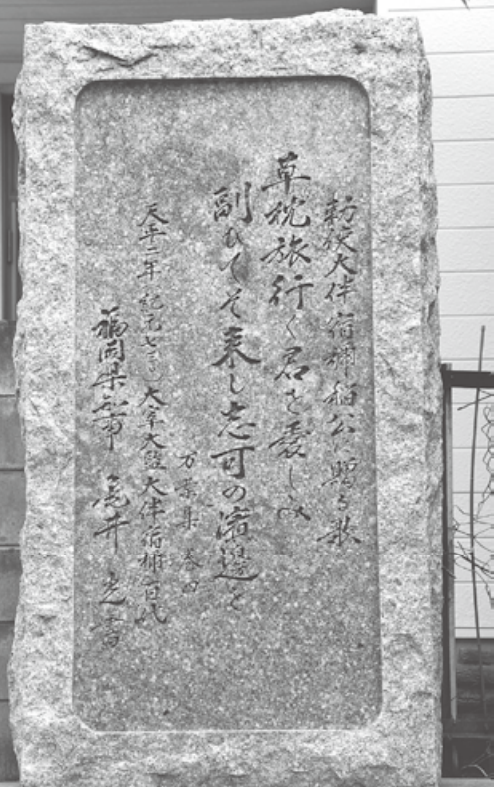 勅使大伴宿禰稲公に贈る歌
草枕旅行く君を愛しみ
副ひてそ来し志可の濱邊を
万葉集 巻四
天平二年 紀元七三〇 大宰大監大伴宿禰百代
福岡県知事 亀井 光書